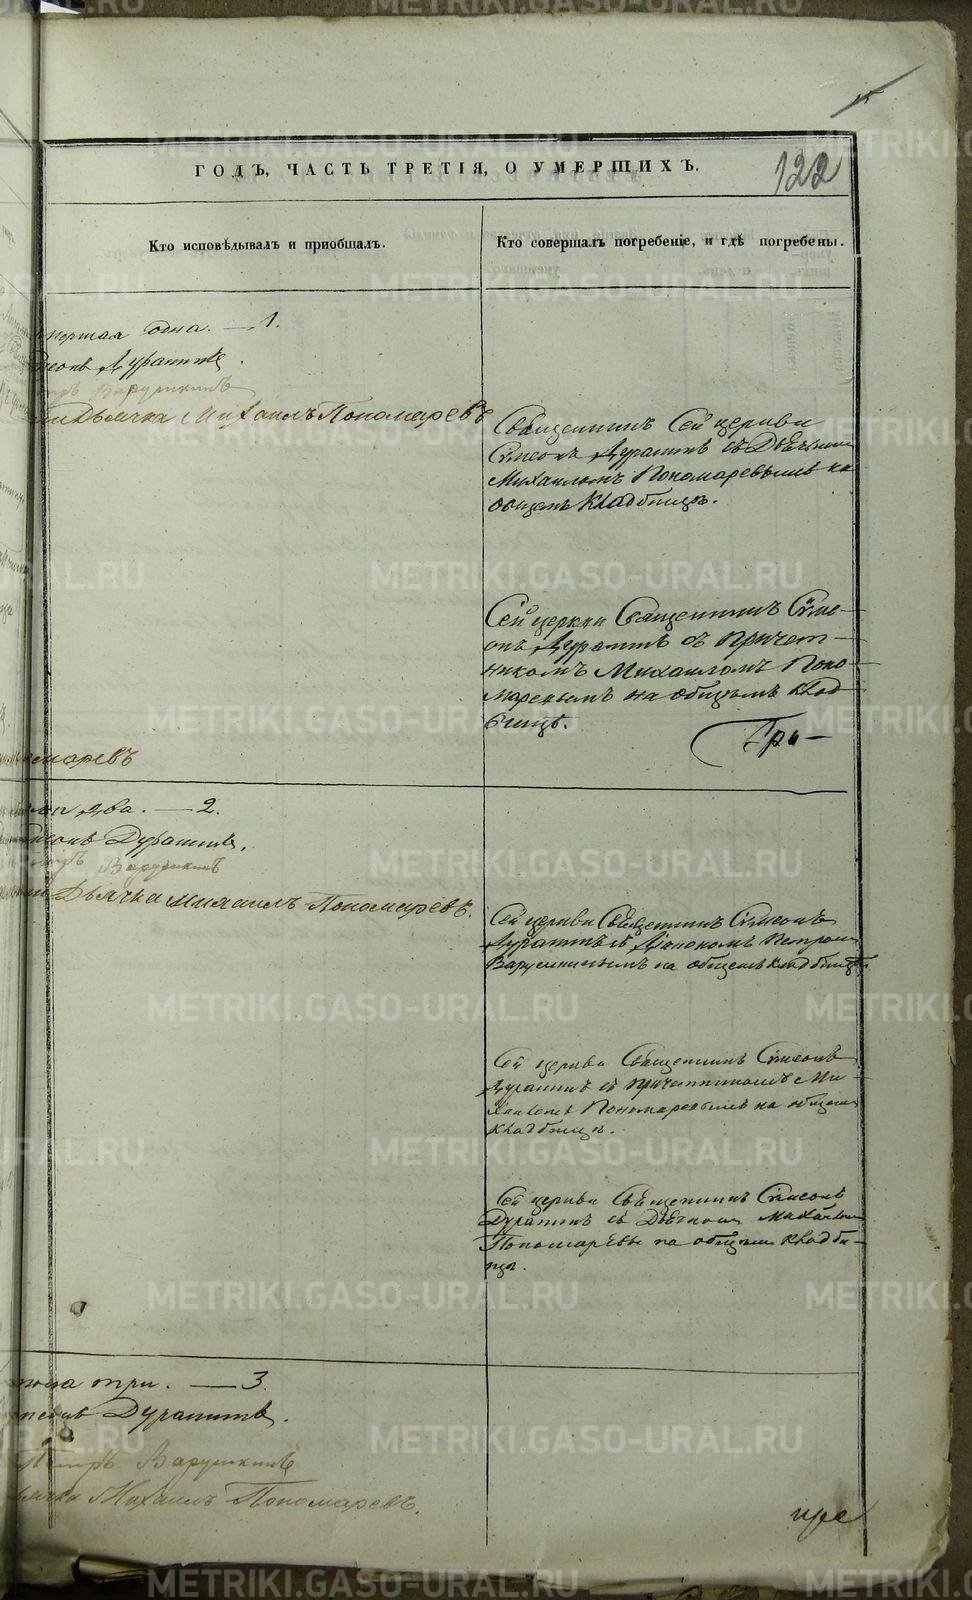 122
ГОДЪ, ЧАСТЬ ТРЕТІЯ, О УМЕРШИХЪ.
Кто исповѣдывалъ и приобщалъ.
Кто совершалъ погребеніе, и гдѣ погребены.
одна. — 1.
Дурагинъ.
Варушкинъ
Дьячка Михаилъ Пономаревъ
Священникъ Сей церкви
Сѵмеонъ Дурагинъ съ Дьячкомъ
Михаиломъ Пономаревымъ на
общемъ кладбищѣ.
Сей церкви Священникъ Сѵме-
онъ Дурагинъ съ причет-
никомъ Михаиломъ Поно-
маревымъ на общемъ клад-
бищѣ.
Гри-
маревъ
два. — 2.
Дурагинъ.
Варушкинъ
Дьячка Михаилъ Пономаревъ.
Сей церкви Священникъ Сѵмеонъ
Дурагинъ съ Діакономъ Петромъ
Варушкинымъ на общемъ кладбищѣ.
Сей церкви Священникъ Сѵмеонъ
Дурагинъ съ причетникомъ Ми-
хаиломъ Пономаревымъ на общемъ
кладбищѣ.
Сей церкви Священникъ Сѵмеонъ
Дурагинъ съ Дьячкомъ Михаиломъ
Пономаревы на общемъ кладби-
щѣ.
три. — 3.
Дурагинъ.
Петръ Варушкинъ
Михаилъ Пономаревъ.
METRIKI.GASO-URAL.RU